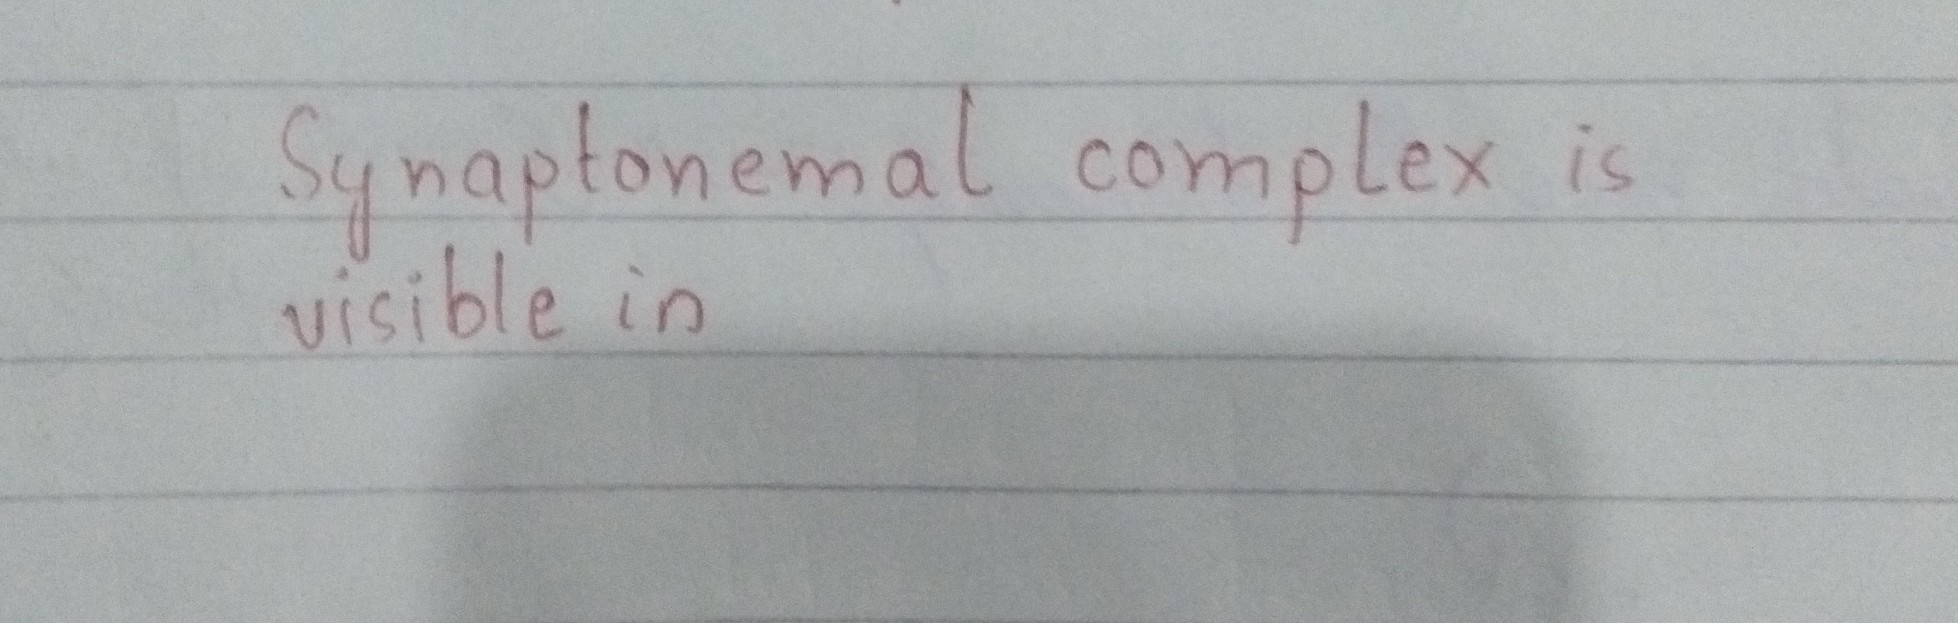 Synaptonemal complex is
visible in